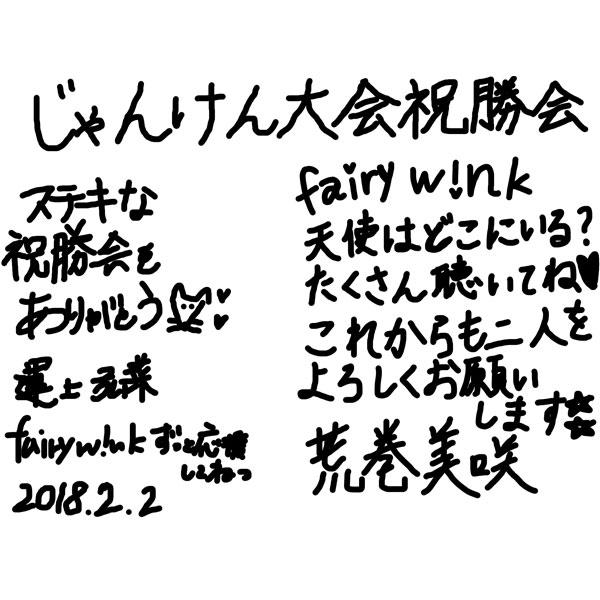 じゃんけん大会祝勝会
ステキな
祝勝会を
ありがとう
運上弘菜
fairy w!nkずっと応援
してねっ
2018.2.2
fairy w!nk
天使はどこにいる?
たくさん聴いてね♥
これからも二人を
よろしくお願い
します
荒巻美咲